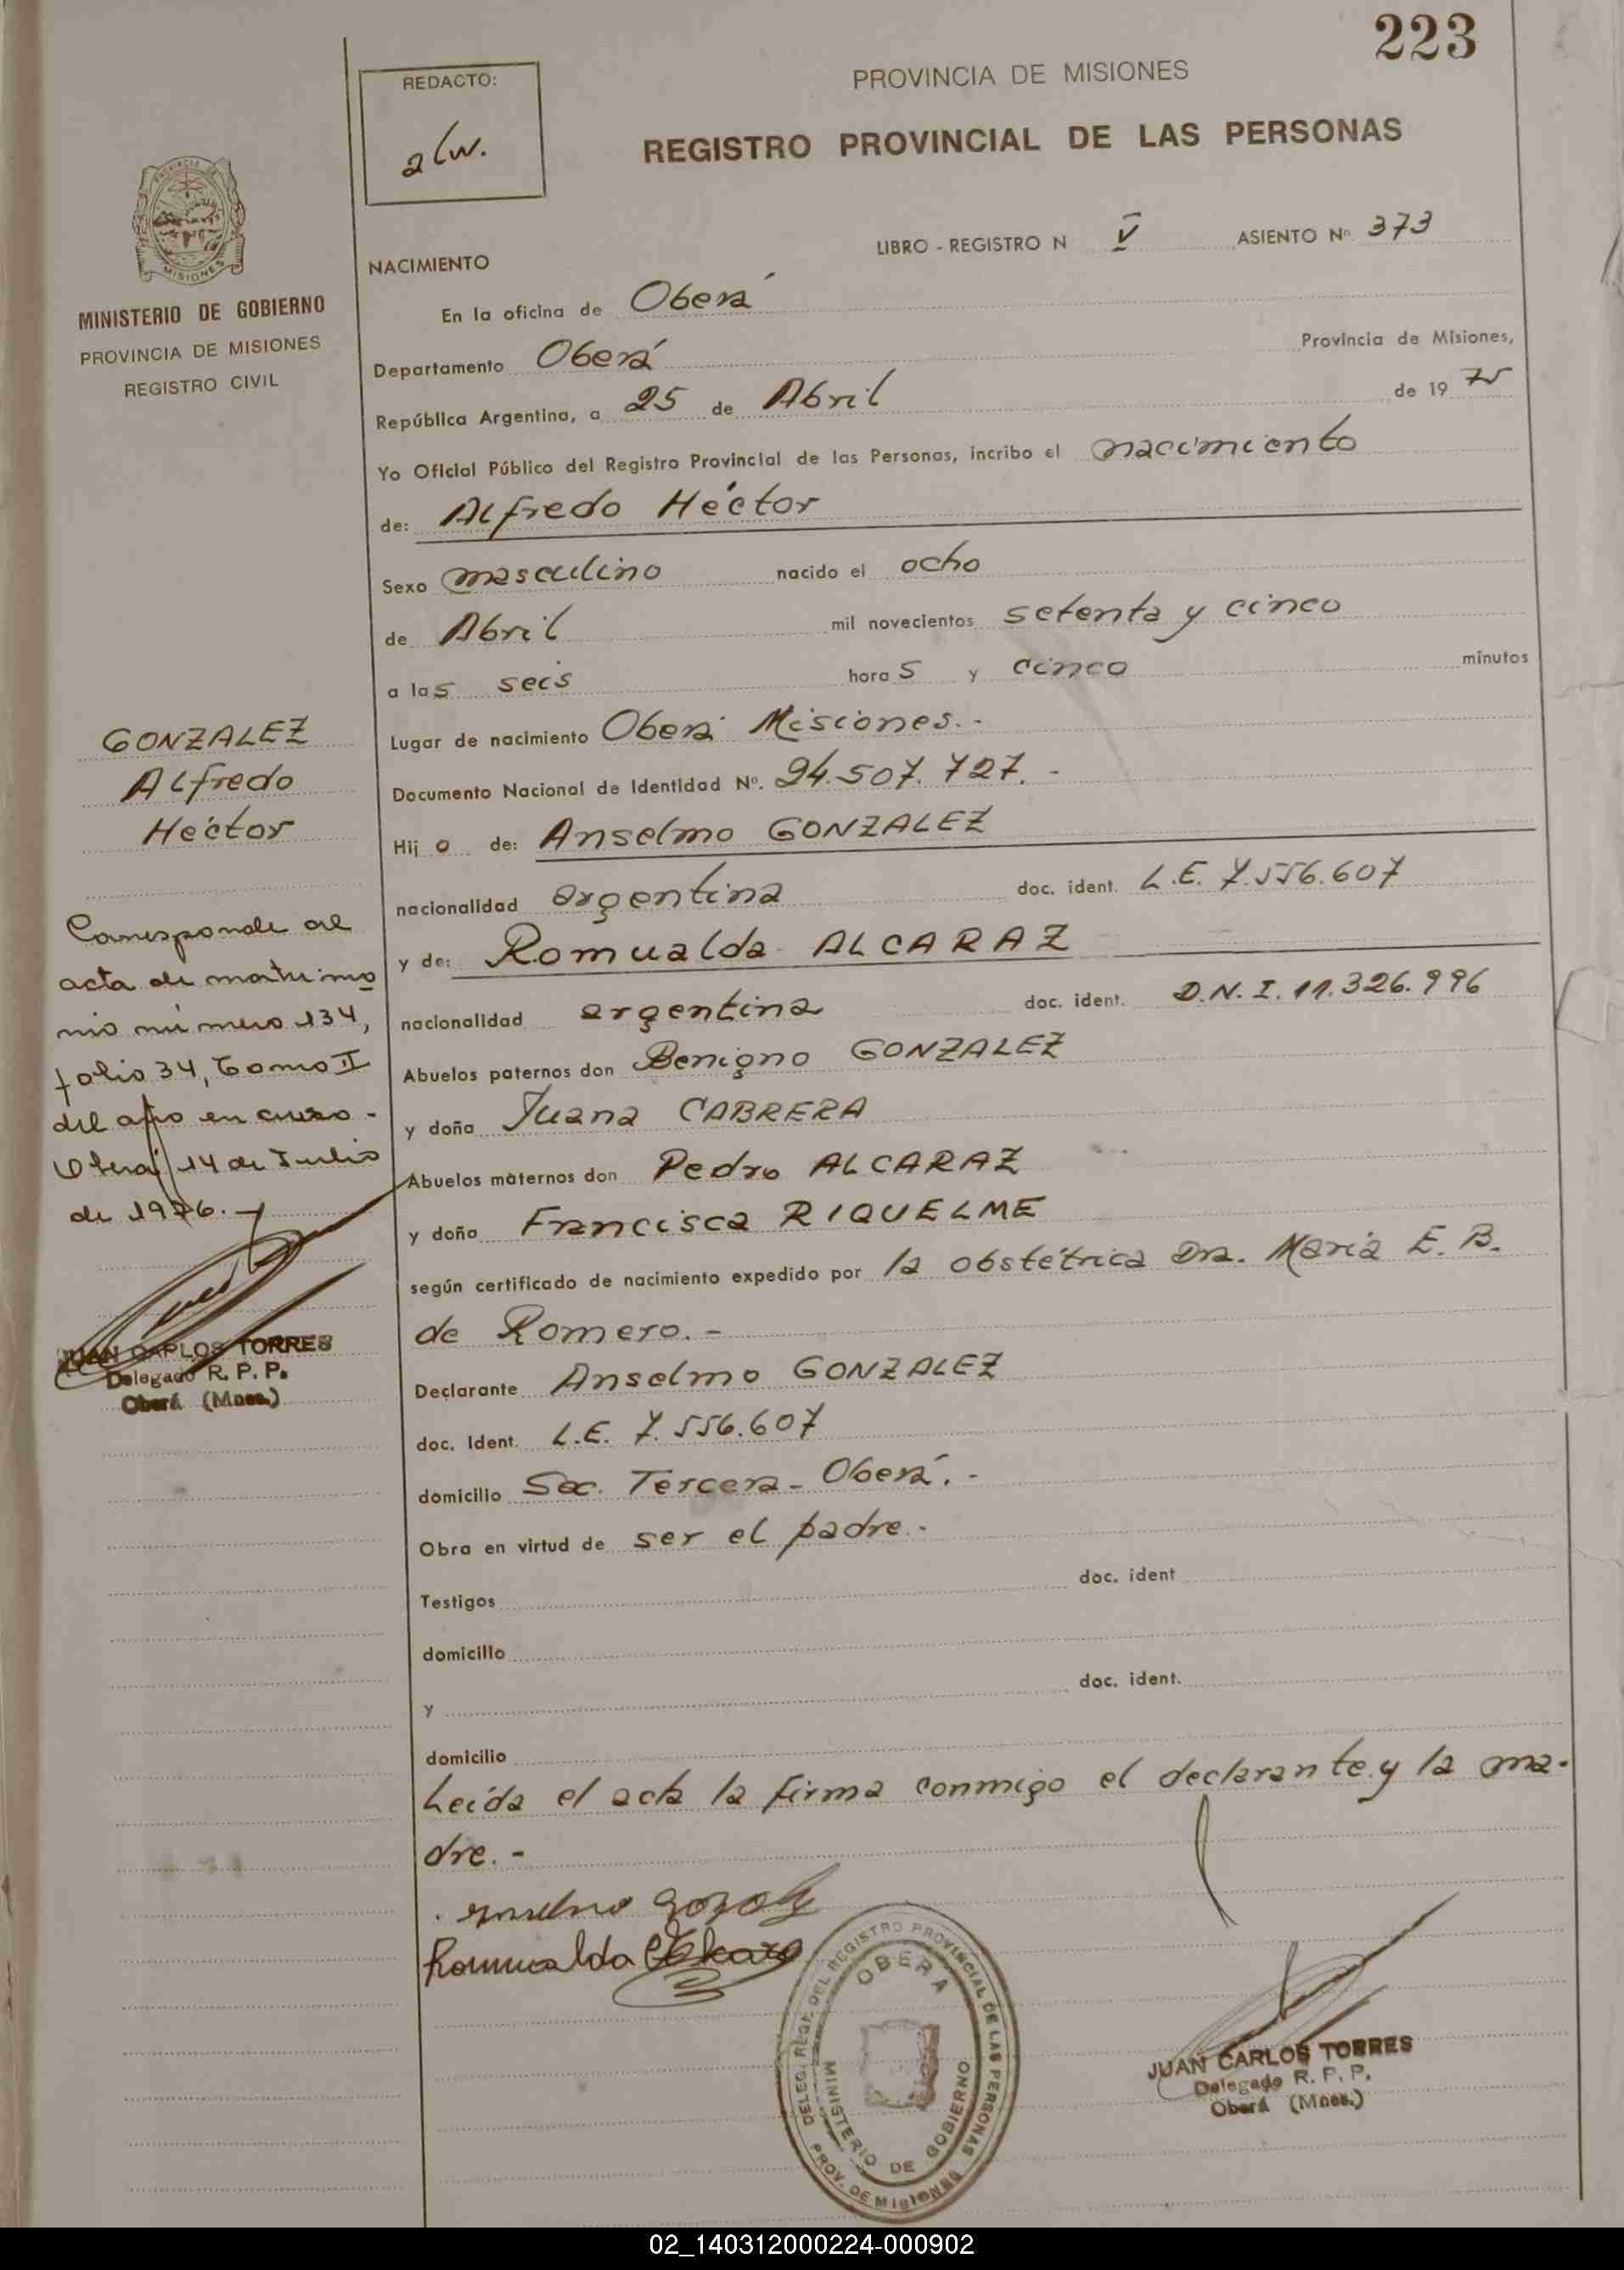 223
REDACTO:
alw.
PROVINCIA DE MISIONES
REGISTRO PROVINCIAL DE LAS PERSONAS
PROVINCIA DE
MISIONES
MINISTERIO DE GOBIERNO
PROVINCIA DE MISIONES
REGISTRO CIVIL
LIBRO - REGISTRO N V ASIENTO Nº 373
NACIMIENTO
En la oficina de Oberá
Departamento Oberá Provincia de Misiones,
República Argentina, a 25 de Abril de 19 75
Yo Oficial Público del Registro Provincial de las Personas, incribo el nacimiento
de: Alfredo Héctor
Sexo masculino nacido el ocho
de Abril mil novecientos setenta y cinco
a las seis horas y cinco minutos
Lugar de nacimiento Oberá Misiones.-
Documento Nacional de Identidad Nº. 24.507.727.-
Hijo de: Anselmo GONZALEZ
nacionalidad argentina doc. ident. L.E. 7.556.607
y de: Romualda ALCARAZ
nacionalidad argentina doc. ident. D.N.I. 11.326.996
Abuelos paternos don Benigno GONZALEZ
y doña Juana CABRERA
Abuelos maternos don Pedro ALCARAZ
y doña Francisca RIQUELME
según certificado de nacimiento expedido por la obstétrica Dra. María E. B.
de Romero.-
Declarante Anselmo GONZALEZ
doc. Ident. L.E. 7.556.607
domicilio Sec. Tercera - Oberá.-
Obra en virtud de ser el padre.-
Testigos doc. ident
domicilio
y doc. ident.
domicilio
Leída el acta la firma conmigo el declarante y la ma-
dre.-
GONZALEZ
Alfredo
Héctor
Corresponde al
acta de matrimo
nio número 134,
folio 34, Tomo II
del año en curso-
Oberá, 14 de Julio
de 1976.-
JUAN CARLOS TORRES
Delegado R. P. P.
Oberá (Mnes.)
Romualda Alcaraz
DELEG. REGI. DEL REGISTRO PROVINCIAL DE LAS PERSONAS
OBERA
MINISTERIO DE GOBIERNO
PROV. DE MISIONES
JUAN CARLOS TORRES
Delegado R. P. P.
Oberá (Mnes.)
02_140312000224-000902